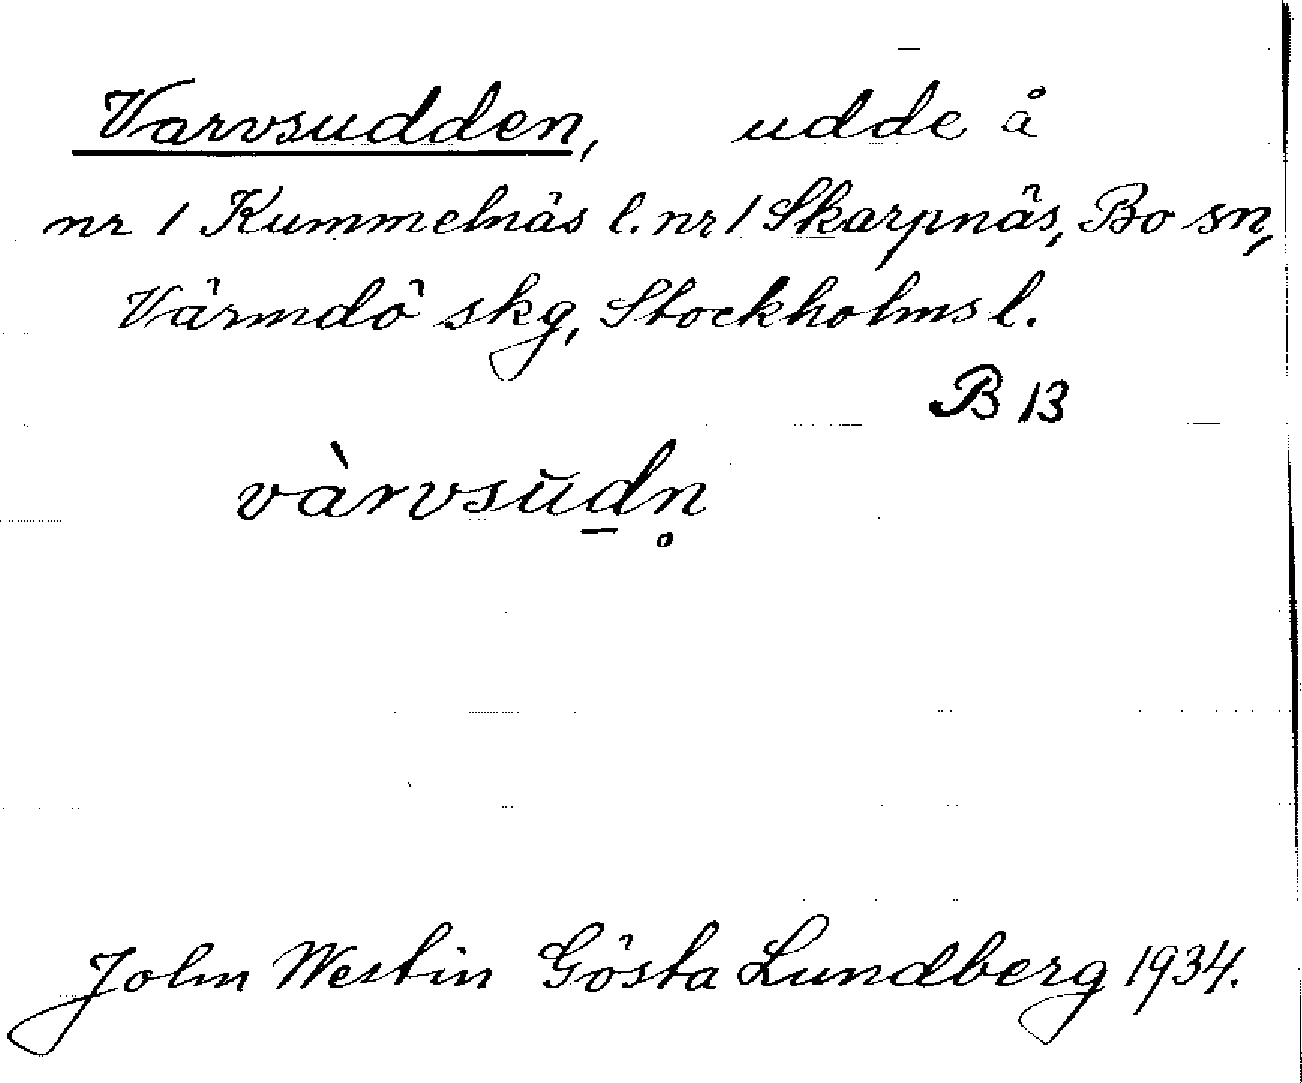 Varvsudden, udde å
nr 1 Kummelnäs l. nr 1 Skarpnäs, Bo sn,
Värmdö skg, Stockholms l.
B 13
vàrvsŭd̲n̥
John Westin Gösta Lundberg 1934.